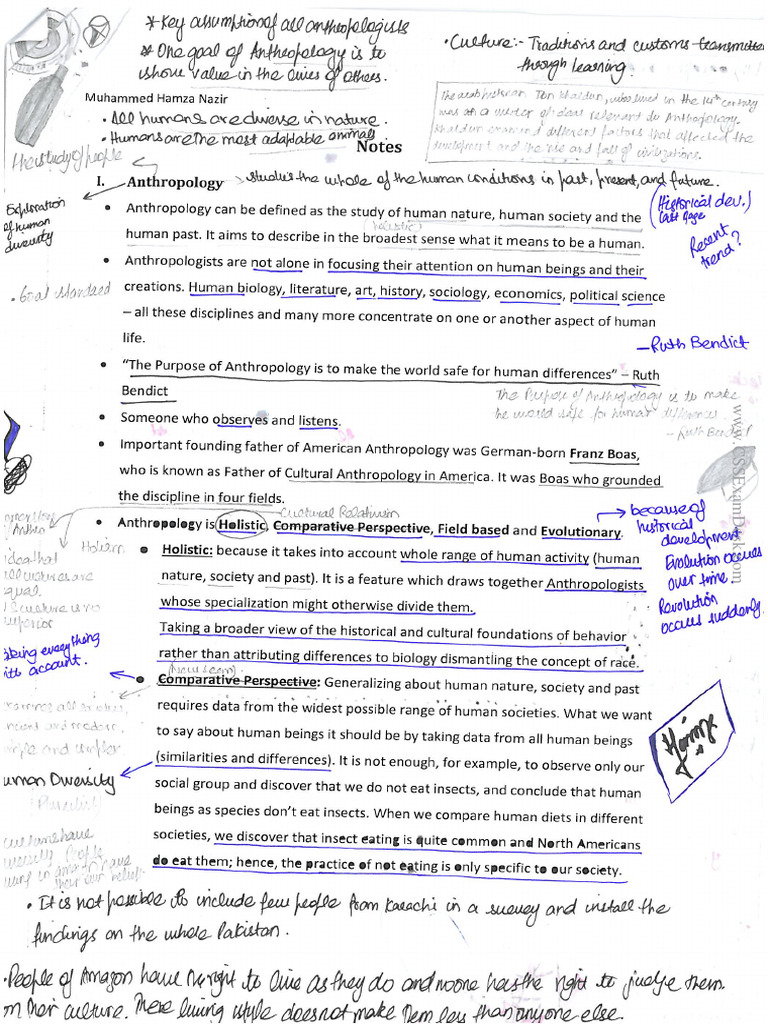 * Key assumption of all anthropologists
* One goal of Anthropology is to
show value in the lives of others.
• Culture:- Traditions and customs transmitted
through learning.
Muhammed Hamza Nazir
• All humans are diverse in nature.
• Humans are the most adaptable animals
The arab historian Ibn Khaldun, who lived in the 14th century
was an a writer of ideas relevant to Anthropology.
Khaldun examined different factors that affected the
development and the rise and fall of civilizations.
Notes
The study of people
I. Anthropology
studies the whole of the human conditions in past, present, and future.
Exploration
of human
diversity
(Historical dev.)
last page
Recent
trend?
• Anthropology can be defined as the study of human nature, human society and the
(holistic)
human past. It aims to describe in the broadest sense what it means to be a human.
• Anthropologists are not alone in focusing their attention on human beings and their
creations. Human biology, literature, art, history, sociology, economics, political science
– all these disciplines and many more concentrate on one or another aspect of human
life.
• Goal standard
– Ruth Bendict
• "The Purpose of Anthropology is to make the world safe for human differences" – Ruth
Bendict
The Purpose of Anthropology is to make
the world safe for human differences.
– Ruth Bendict
• Someone who observes and listens.
• Important founding father of American Anthropology was German-born Franz Boas,
who is known as Father of Cultural Anthropology in America. It was Boas who grounded
the discipline in four fields.
www.CSSExamDesk.com
Cultural Relativism
• Anthropology is Holistic, Comparative Perspective, Field based and Evolutionary.
because of
historical
development
Evolution occurs
over time.
Revolution
occurs suddenly.
Holism
idea that
all cultures are
equal.
& culture is no
superior
• Holistic: because it takes into account whole range of human activity (human
nature, society and past). It is a feature which draws together Anthropologists
whose specialization might otherwise divide them.
Taking a broader view of the historical and cultural foundations of behavior
rather than attributing differences to biology dismantling the concept of race.
taking everything
into account.
• Comparative Perspective: Generalizing about human nature, society and past
requires data from the widest possible range of human societies. What we want
to say about human beings it should be by taking data from all human beings
(similarities and differences). It is not enough, for example, to observe only our
social group and discover that we do not eat insects, and conclude that human
beings as species don't eat insects. When we compare human diets in different
societies, we discover that insect eating is quite common and North Americans
do eat them; hence, the practice of not eating is only specific to our society.
ancient and modern,
simple and complex
Human Diversity
Hamza
• It is not possible to include few people from Karachi in a survey and install the
findings on the whole Pakistan.
• People of Amazon have the right to live as they do and no one has the right to judge them
on their culture. There living style does not make them less than anyone else.